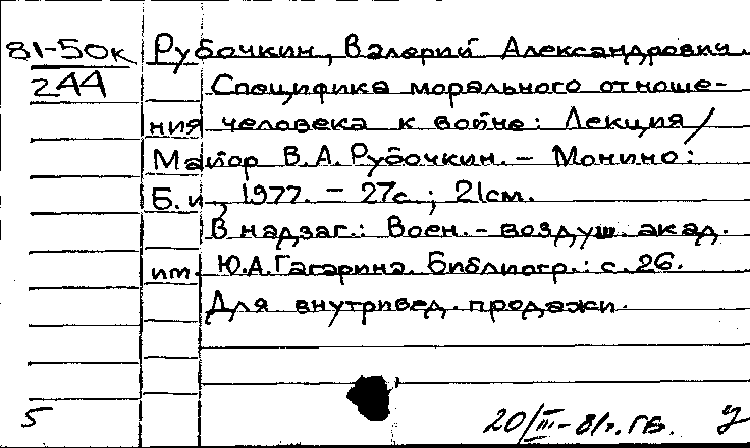 81-50к Рубочкин, Валерий Александрович.
244 Специфика морального отноше-
ния человека к войне: Лекция /
Майор В.А. Рубочкин. – Монино:
Б.и., 1977. – 27с.; 21см.
В надзаг.: Воен.-воздуш. акад.
им. Ю.А. Гагарина. Библиогр.: с. 26.
Для внутривед. продажи.
5 20/III-81г. ГБ.